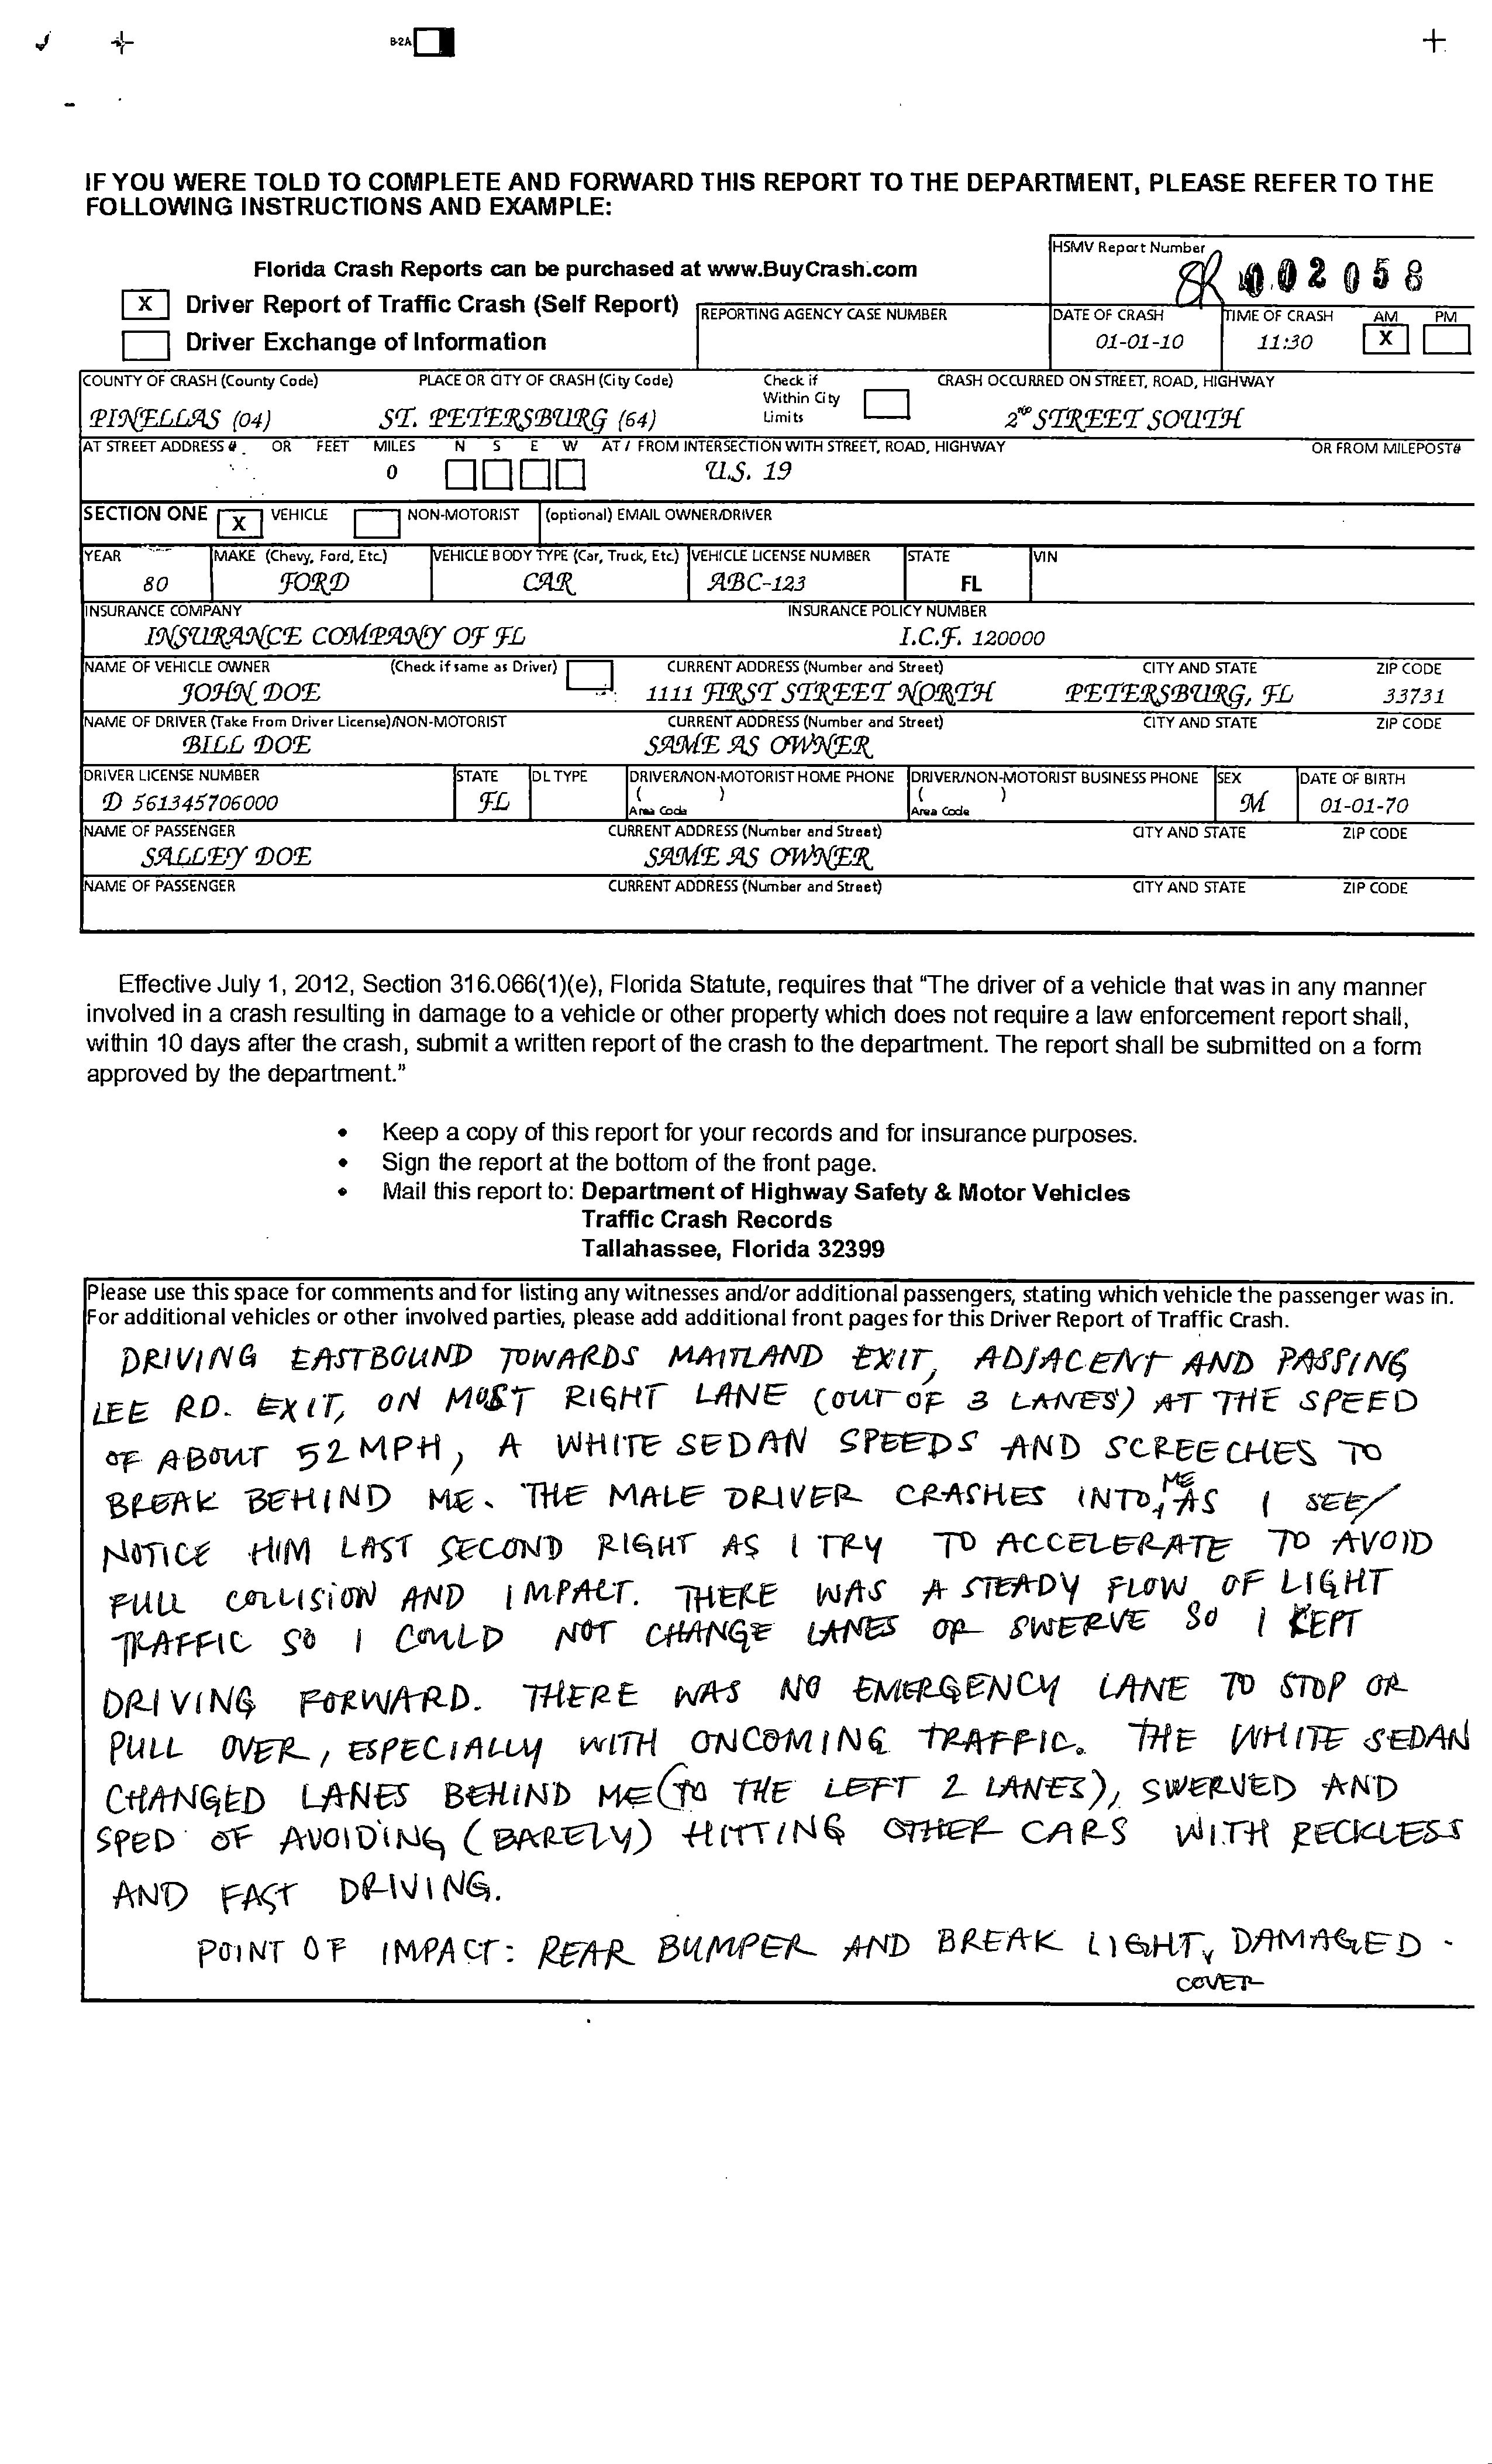 B-2A
IF YOU WERE TOLD TO COMPLETE AND FORWARD THIS REPORT TO THE DEPARTMENT, PLEASE REFER TO THE
FOLLOWING INSTRUCTIONS AND EXAMPLE:
HSMV Report Number
002058
Florida Crash Reports can be purchased at www.BuyCrash.com
X Driver Report of Traffic Crash (Self Report)
Driver Exchange of Information
REPORTING AGENCY CASE NUMBER
DATE OF CRASH TIME OF CRASH AM PM
01-01-10 11:30 X
COUNTY OF CRASH (County Code) PLACE OR CITY OF CRASH (City Code) Check if Within City Limits CRASH OCCURRED ON STREET, ROAD, HIGHWAY
PINELLAS (04) ST. PETERSBURG (64) 2ND STREET SOUTH
AT STREET ADDRESS # OR FEET MILES N S E W AT / FROM INTERSECTION WITH STREET, ROAD, HIGHWAY OR FROM MILEPOST#
0 U.S. 19
SECTION ONE X VEHICLE NON-MOTORIST (optional) EMAIL OWNER/DRIVER
YEAR MAKE (Chevy, Ford, Etc.) VEHICLE BODY TYPE (Car, Truck, Etc.) VEHICLE LICENSE NUMBER STATE VIN
80 FORD CAR ABC-123 FL
INSURANCE COMPANY INSURANCE POLICY NUMBER
INSURANCE COMPANY OF FL I.C.F. 120000
NAME OF VEHICLE OWNER (Check if same as Driver) CURRENT ADDRESS (Number and Street) CITY AND STATE ZIP CODE
JOHN DOE 1111 FIRST STREET NORTH PETERSBURG, FL 33731
NAME OF DRIVER (Take From Driver License)/NON-MOTORIST CURRENT ADDRESS (Number and Street) CITY AND STATE ZIP CODE
BILL DOE SAME AS OWNER
DRIVER LICENSE NUMBER STATE DL TYPE DRIVER/NON-MOTORIST HOME PHONE DRIVER/NON-MOTORIST BUSINESS PHONE SEX DATE OF BIRTH
D 561345706000 FL ( ) Area Code ( ) Area Code M 01-01-70
NAME OF PASSENGER CURRENT ADDRESS (Number and Street) CITY AND STATE ZIP CODE
SALLEY DOE SAME AS OWNER
NAME OF PASSENGER CURRENT ADDRESS (Number and Street) CITY AND STATE ZIP CODE
Effective July 1, 2012, Section 316.066(1)(e), Florida Statute, requires that "The driver of a vehicle that was in any manner
involved in a crash resulting in damage to a vehicle or other property which does not require a law enforcement report shall,
within 10 days after the crash, submit a written report of the crash to the department. The report shall be submitted on a form
approved by the department."
• Keep a copy of this report for your records and for insurance purposes.
• Sign the report at the bottom of the front page.
• Mail this report to: Department of Highway Safety & Motor Vehicles
Traffic Crash Records
Tallahassee, Florida 32399
Please use this space for comments and for listing any witnesses and/or additional passengers, stating which vehicle the passenger was in.
For additional vehicles or other involved parties, please add additional front pages for this Driver Report of Traffic Crash.
DRIVING EASTBOUND TOWARDS MAITLAND EXIT, ADJACENT AND PASSING
LEE RD. EXIT, ON MOST RIGHT LANE (OUT OF 3 LANES) AT THE SPEED
OF ABOUT 52 MPH, A WHITE SEDAN SPEEDS AND SCREECHES TO
BREAK BEHIND ME. THE MALE DRIVER CRASHES INTO ME, AS I SEE/
NOTICE HIM LAST SECOND RIGHT AS I TRY TO ACCELERATE TO AVOID
FULL COLLISION AND IMPACT. THERE WAS A STEADY FLOW OF LIGHT
TRAFFIC SO I COULD NOT CHANGE LANES OR SWERVE SO I KEPT
DRIVING FORWARD. THERE WAS NO EMERGENCY LANE TO STOP OR
PULL OVER, ESPECIALLY WITH ONCOMING TRAFFIC. THE WHITE SEDAN
CHANGED LANES BEHIND ME (TO THE LEFT 2 LANES), SWERVED AND
SPED OF AVOIDING (BARELY) HITTING OTHER CARS WITH RECKLESS
AND FAST DRIVING.
POINT OF IMPACT: REAR BUMPER AND BREAK LIGHT COVER DAMAGED.